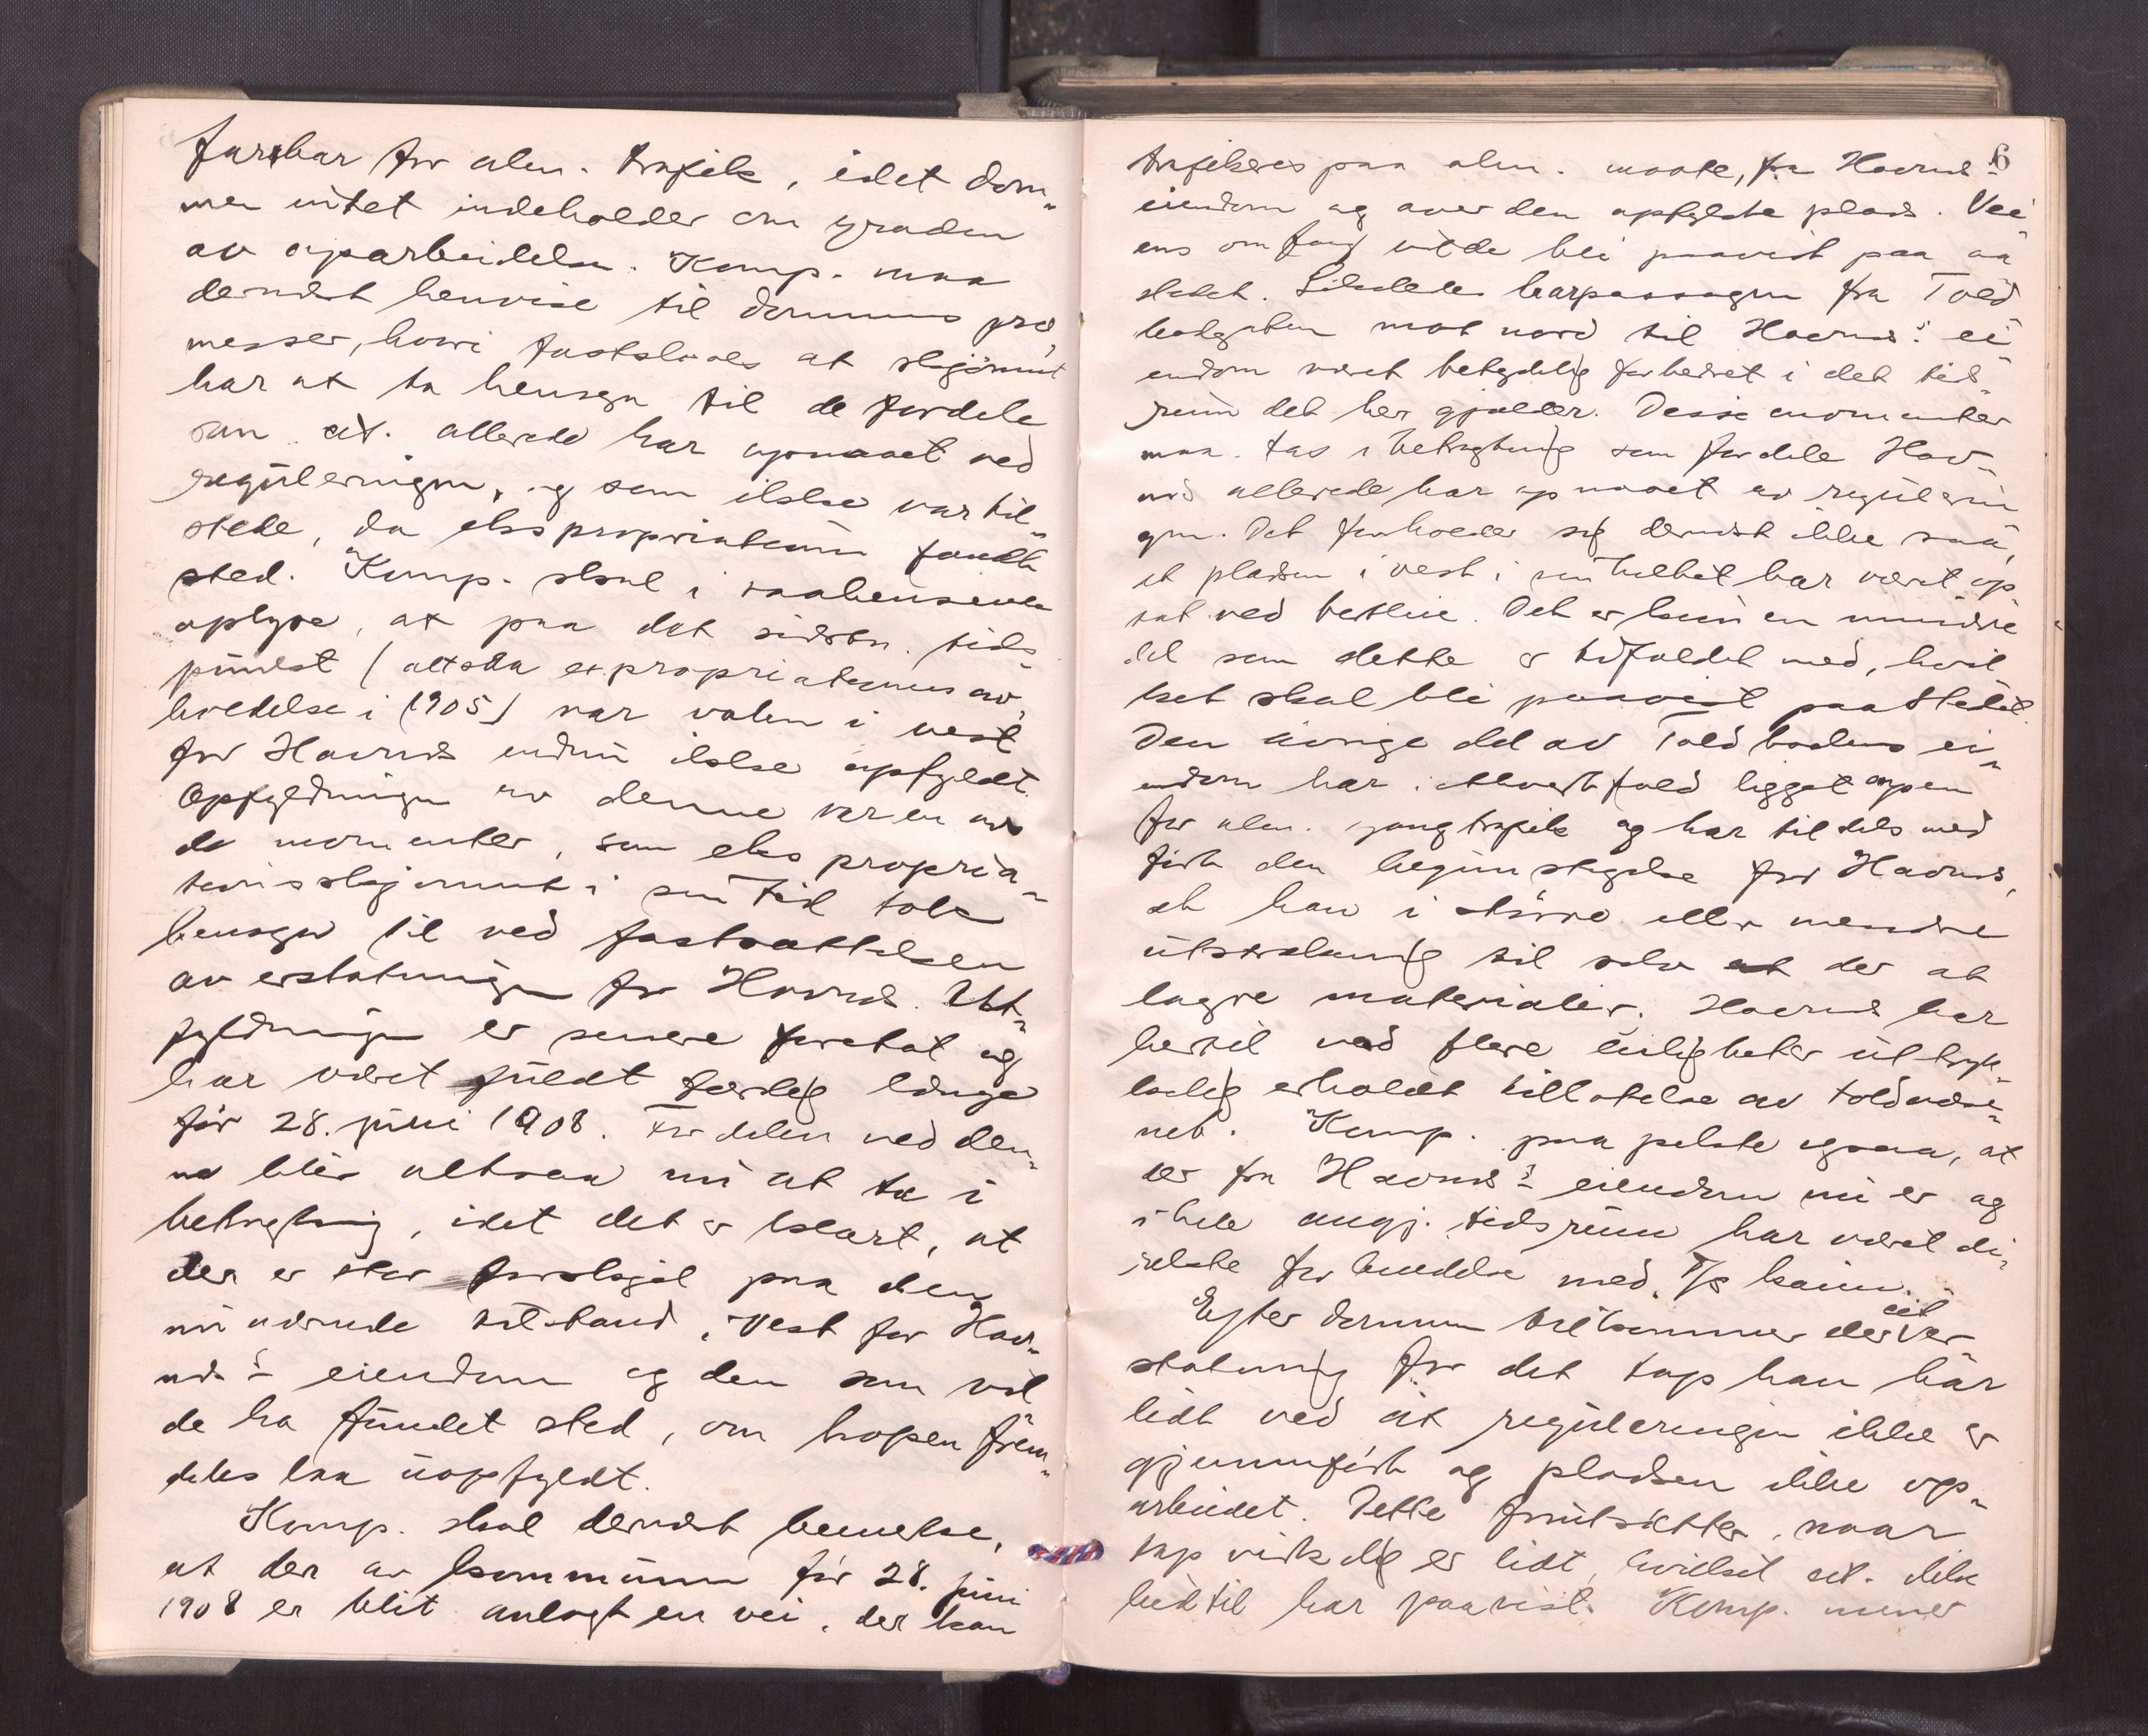 farbar for alm. trafik, idet dom„
men intet indeholder om graden
av oparbeidelsen. Komp. maa
dernæst henvise til dommens præ„
messer, hvori fastslaaes at skjønnet
har at ta hensyn til de fordele
som cit. allerede har opnaaet ved
reguleringen, og som ikke var til„
stede, da ekspropriationen fandt
sted. Komp. skal i saa henseende
oplyse, at paa det sidstn. tids„
punkt (altsaa expropriationens av„
holdelse i 1905) var volen i vest
for Havnds endnu ikke opfyldt.
Opfyldningen av denne var en av
de momenter, som ekspropria„
tionsskjønnet i sin tid tok
hensyn til ved fastsættelsen
av erstatningen for Havnds. Ut„
fyldningen er senere foretat og
har været fuldt færdig længe
før 28. juni 1908. Fordelen ved den„
ne blir altsaa nu at ta i
betragtning, idet det er klart, at
der er stor forskjel paa den
nuværende tilstand i Vest for Hav„
nds's eiendom og den som vil
de ha fundet sted, om hopen frem„
deles laa uopfyldt.
Komp. skal dernæst bemerke,
at der av kommunen før 28. juni
1908 er blit anlagt en vei, der kan
6
trafikeres paa alm. maate, fra Havnds's
eiendom og over den opfyldte plads. Vei
ens omfang vilde bli paavist paa aa
stedet. Likeledes har passagen fra Told
bodgaten mot nord til Havnds's ei
endom været betydelig forbedret i det tids„
rum det her gjælder. Disse momenter
maa tas i betragtning som fordele Hav„
nds allerede har opnaaet av regulerin
gen. Det forholder sig dernæst ikke saa,
at pladsen i vest i sin helhet har været op
tat ved bortleie. Det er kun en mindre
del som dette er tilfældet med, hvil
ket skal bli paavist paa stedet.
Den øvrige del av Toldbodens ei„
endom har i ethvert fald ligget open
for alm. gangtrafik og har tildels med
ført den begunstigelse for Havnds,
at han i større eller mindre
utstrækning til selv at der at
lagre materialer. Havnds har
hertil ved flere leiligheter uttryk„
kelig erholdt tillatelse av toldvæse„
net. Komp. paapekte ogsaa, at
der fra Havnds's eiendom nu er og
i hele angj. tidsrum har været di„
rekte forbindelse med T/s kaien.
Efter dommen tilkommer der cit. er„
statning for det tap han har
lidt ved at reguleringen ikke er
gjennemført og pladsen ikke op„
arbeidet. Dette forutsætter, naar
tap virkelig er lidt, hvilket cit. ikke
hidtil har paavist. Komp. mener